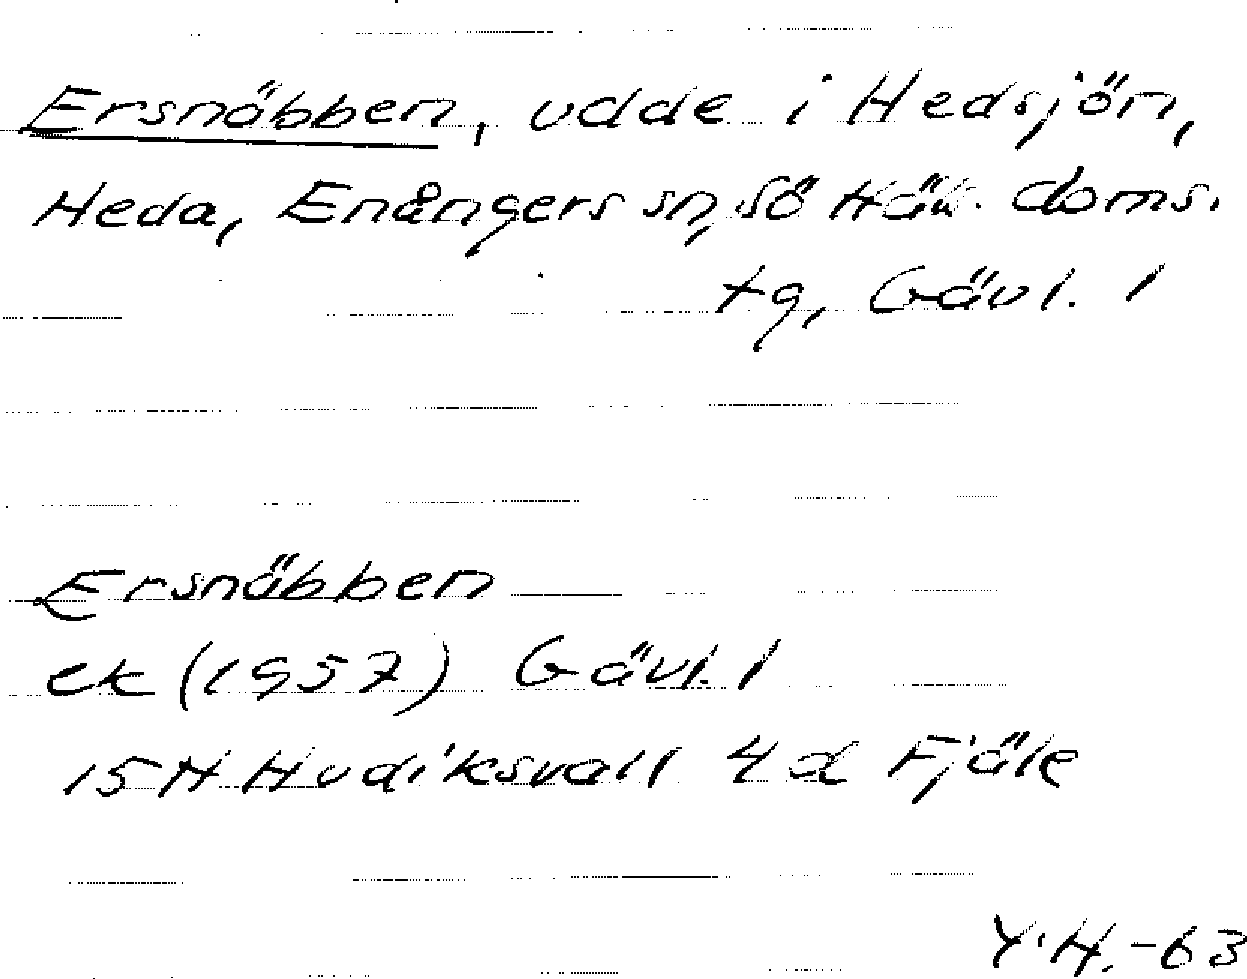 Ersnäbben, udde i Hedsjön,
Heda, Enångers sn, Sö Häls. doms.
tg, Gävl. l
Ersnäbben
ek (1957) Gävl. l
15H Hudiksvall 4d Fjäle
Y.H.-63